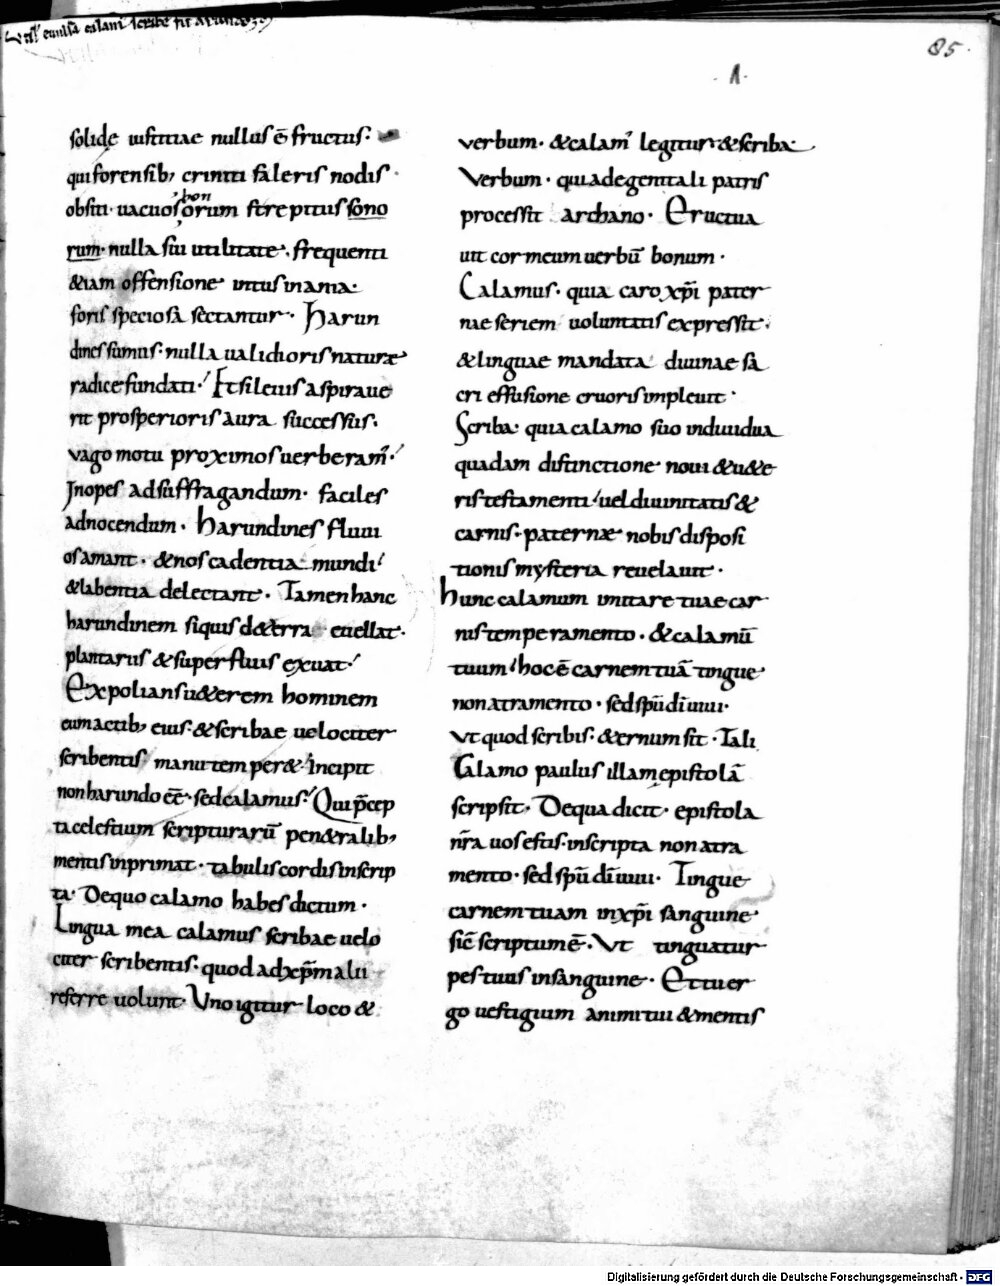 85
·A·
solidę iustitiae nullus ē fructus·
qui forensib; criniti faleris nodis·
obsiti· uacuos bonorum strepitus sono
rum· nulla siu utilitate, frequenti
&iam offensione intus inania·
foris speciosa sectantur· Harun
dines sumus· nulla ualidioris naturæ
radice fundati· Et si leuis aspiraue
rit prosperioris aura successus·
uago motu proximos uerberam᾽·
Inopes ad suffragandum· faciles
ad nocendum· harundines fluui
os amant· & nos cadentia mundi
& labentia delectant· Tamen hanc
harundinem siquis de terra euellat·
plantariis & superfluis exuat·
Expolians u&erem hominem
cum actib; eius· & scribae uelociter
scribentis manu temper&· Incipit
non harundo eē· sed calamus· Qui p̄cep
ta celestium scripturarū pen&ralib;
mentis inprimat· tabulis cordis inscrip
ta· De quo calamo habes dictum·
Lingua mea calamus scribae uelo
citer scribentis· quod ad xp̄m alii
referre uolunt· Uno igitur loco &
uerbum· & calam᾽ legitur & scriba·
Verbum· quia de genitali patris
processit archano· Eructua
uit cor meum uerbū bonum·
Calamus· quia caro xp̄i pater
nae seriem uoluntatis expressit·
& linguae mandata diuinae sa
cri effusione cruoris impleuit·
Scriba· quia calamo suo indiuidua
quadam distinctione noui & u&e
ris testamenti uel diuinitatis &
carnis· paternæ nobis disposi
tionis mysteria reuelauit·
hunc calamum imitare tuae car
nis temperamento· & calamū
tuum hoc ē carnem tuā tingue
non atramento· sed spū dī uiui·
Vt quod scribis· &ernum sit· Tali
Calamo paulus illam epistolā
scripsit· De qua dicit· epistola
nr̄a uos estis· inscripta non atra
mento· sed spū dī uiui· Tingue
carnem tuam in xp̄i sanguine
sic̄ scriptum ē· Vt tinguatur
pes tuus in sanguine· Et tu er
go uestigium animi tui & mentis
Digitalisierung gefördert durch die Deutsche Forschungsgemeinschaft - DFG